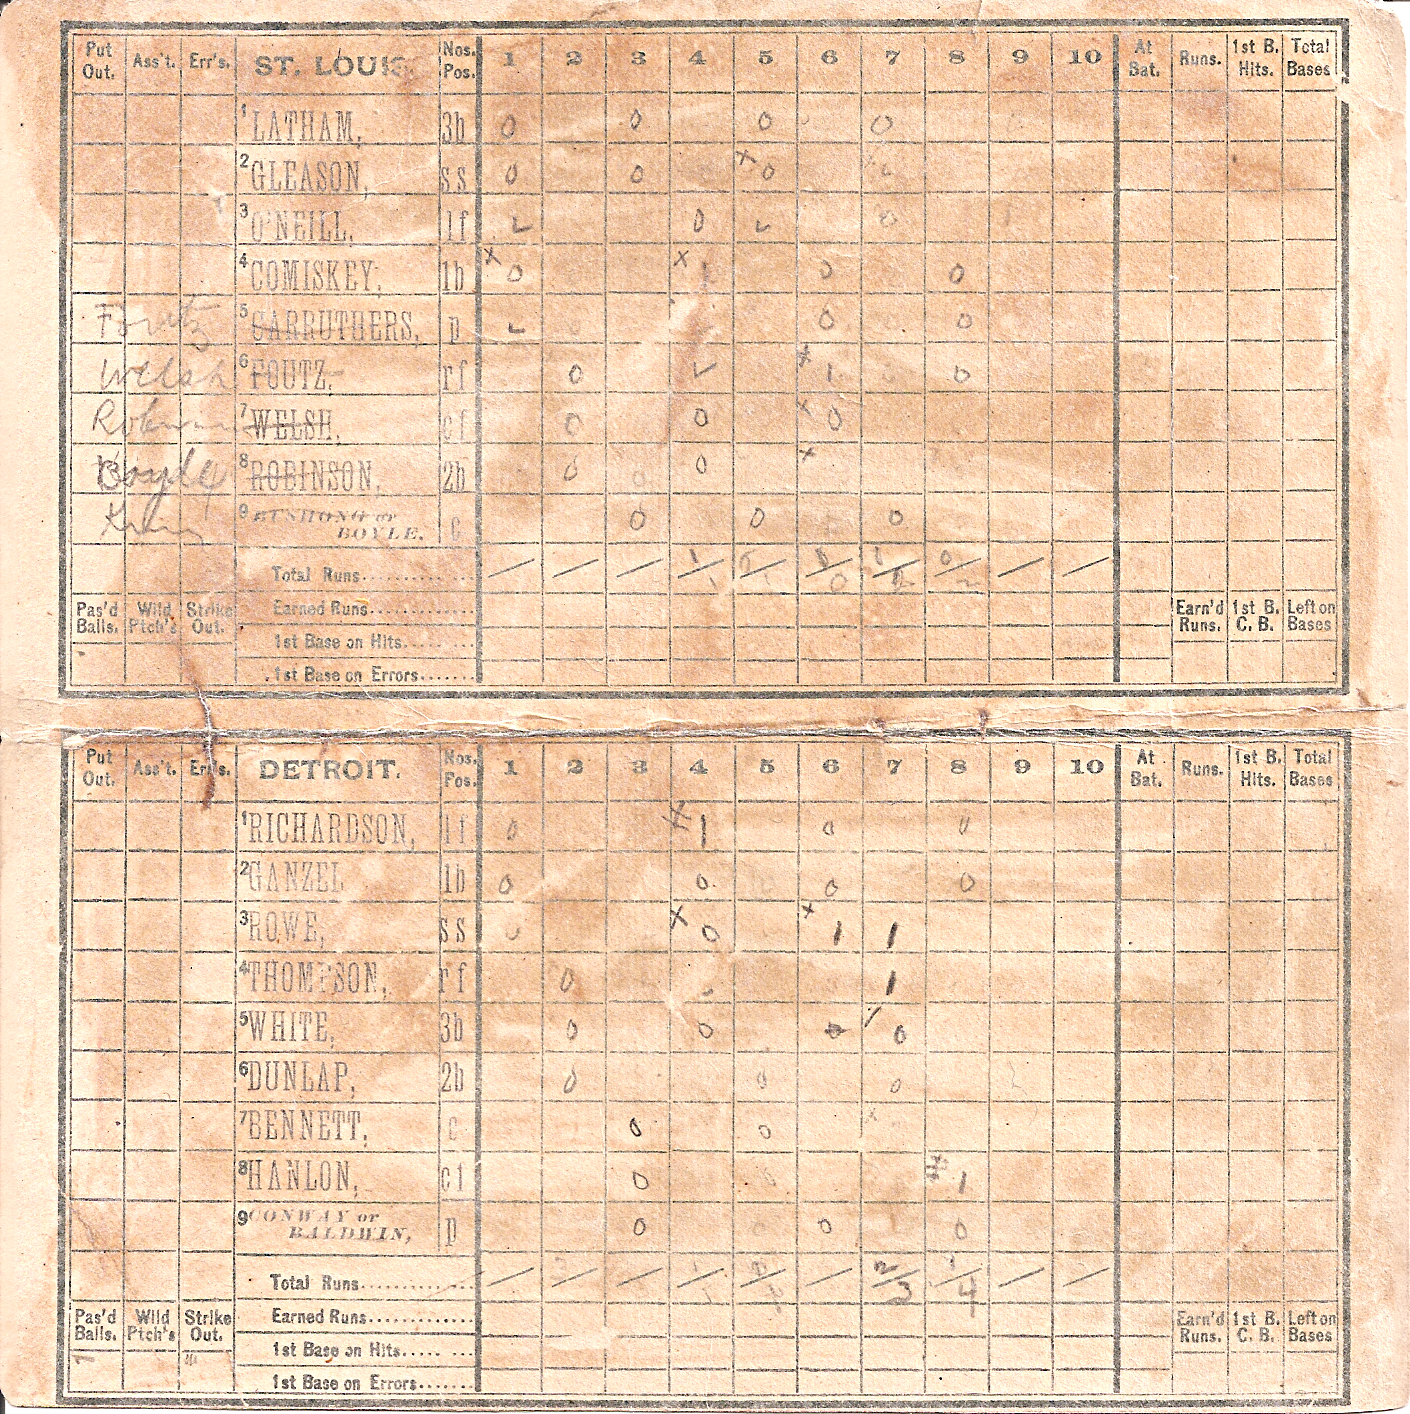 Put Out. Ass't. Err's. ST. LOUIS Nos. Pos. 1 2 3 4 5 6 7 8 9 10 At Bat. Runs. 1st B. Hits. Total Bases
1 LATHAM, 3b 0 0 0 0
2 GLEASON, ss 0 0 x 0
3 O'NEILL, lf 0 0
4 COMISKEY, 1b x 0 x 1 0 0
Foutz 5 CARRUTHERS, p 0 0
Welsh 6 FOUTZ, rf 0 x 1 0
7 WELSH, cf 0 0 x 0
Boyle 8 ROBINSON, 2b 0 0 x
9 BUSHONG or BOYLE, c 0 0 0
Total Runs
Earned Runs
1st Base on Hits
1st Base on Errors
Pas'd Balls. Wild Ptch's Strike Out. Earn'd Runs. 1st B. C. B. Left on Bases
Put Out. Ass't. Err's. DETROIT. Nos. Pos. 1 2 3 4 5 6 7 8 9 10 At Bat. Runs. 1st B. Hits. Total Bases
1 RICHARDSON, lf 0 1 0 0
2 GANZEL 1b 0 0 0 0
3 ROWE, ss x 0 x 1 1
4 THOMPSON, rf 0 1
5 WHITE, 3b 0 0 0
6 DUNLAP, 2b 0 0 0
7 BENNETT, c 0 0 x
8 HANLON, cf 0 1
9 CONWAY or BALDWIN, p 0 0 0
Total Runs 2/3 4
Earned Runs
1st Base on Hits
1st Base on Errors
Pas'd Balls. Wild Ptch's Strike Out. Earn'd Runs. 1st B. C. B. Left on Bases